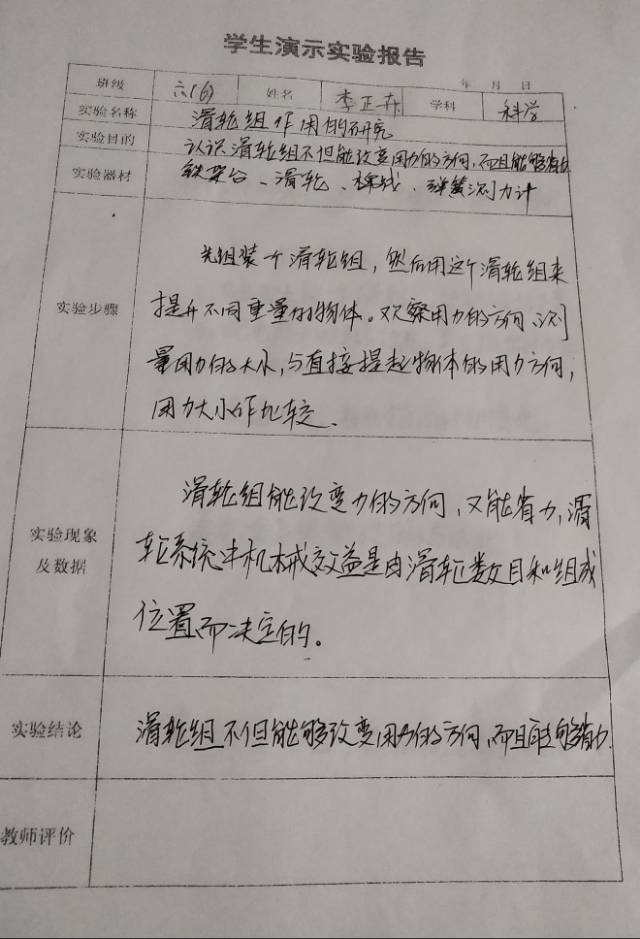 学生演示实验报告
年 月 日
班级 六(6) 姓名 李正 学科 科学
实验名称 滑轮组作用的研究
实验目的 认识滑轮组不但能改变用力的方向,而且能够省力
实验器材 铁架台、滑轮、棉线、弹簧测力计
实验步骤
先组装一个滑轮组,然后用这个滑轮组来
提升不同重量的物体。观察用力的方向、测
量用力的大小,与直接提起物体的用力方向,
用力大小作比较、
实验现象
及数据
滑轮组能改变力的方向,又能省力,滑
轮系统中机械效益是由滑轮数目和组成
位置而决定的。
实验结论 滑轮组不但能够改变用力的方向,而且能够省力.
教师评价